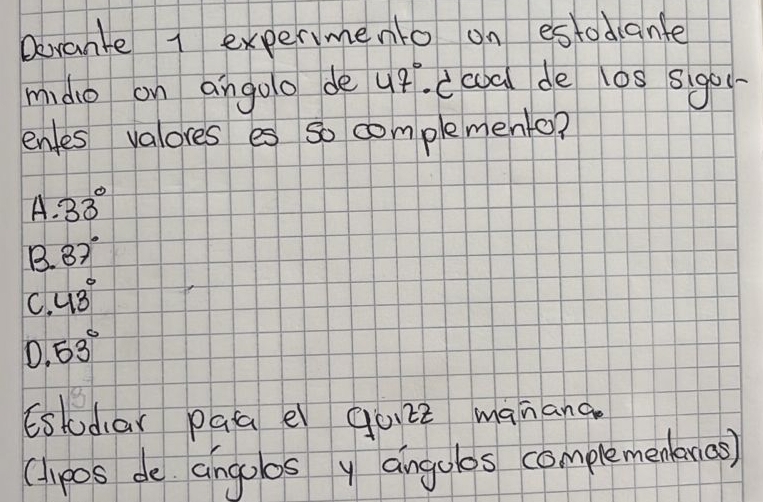 Durante 1 experimento un estudiante
midio un ángulo de 47°. ¿cual de los sigui-
entes valores es su complemento?
A. 33°
B. 37°
C. 43°
D. 53°
Estudiar para el quizz mañana.
(tipos de ángulos y ángulos complementarios)